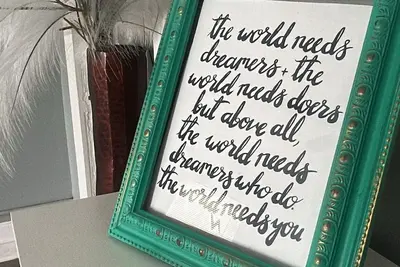 the world needs
dreamers + the
world needs doers
but above all,
the world needs
dreamers who do
the world needs you